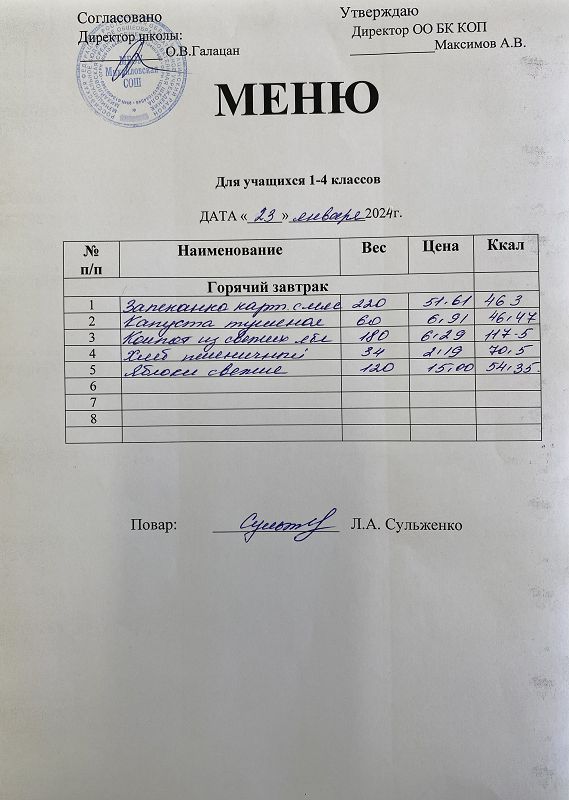 Согласовано
Утверждаю
Директор школы:
Директор ОО БК КОП
О.В.Галацан
Максимов А.В.
МБОУ
Михайловская
СОШ
МЕНЮ
Для учащихся 1-4 классов
ДАТА « 23 » января 2024г.
№ п/п Наименование Вес Цена Ккал
Горячий завтрак
1 Запеканка карт. с мяс 220 51.61 463
2 Капуста тушеная 60 6.91 46,47
3 Компот из свежих ябл 180 6.29 117.5
4 Хлеб пшеничный 34 2.19 70,5
5 Яблоки свежие 120 15,00 54,35
6
7
8
Повар: Л.А. Сульженко